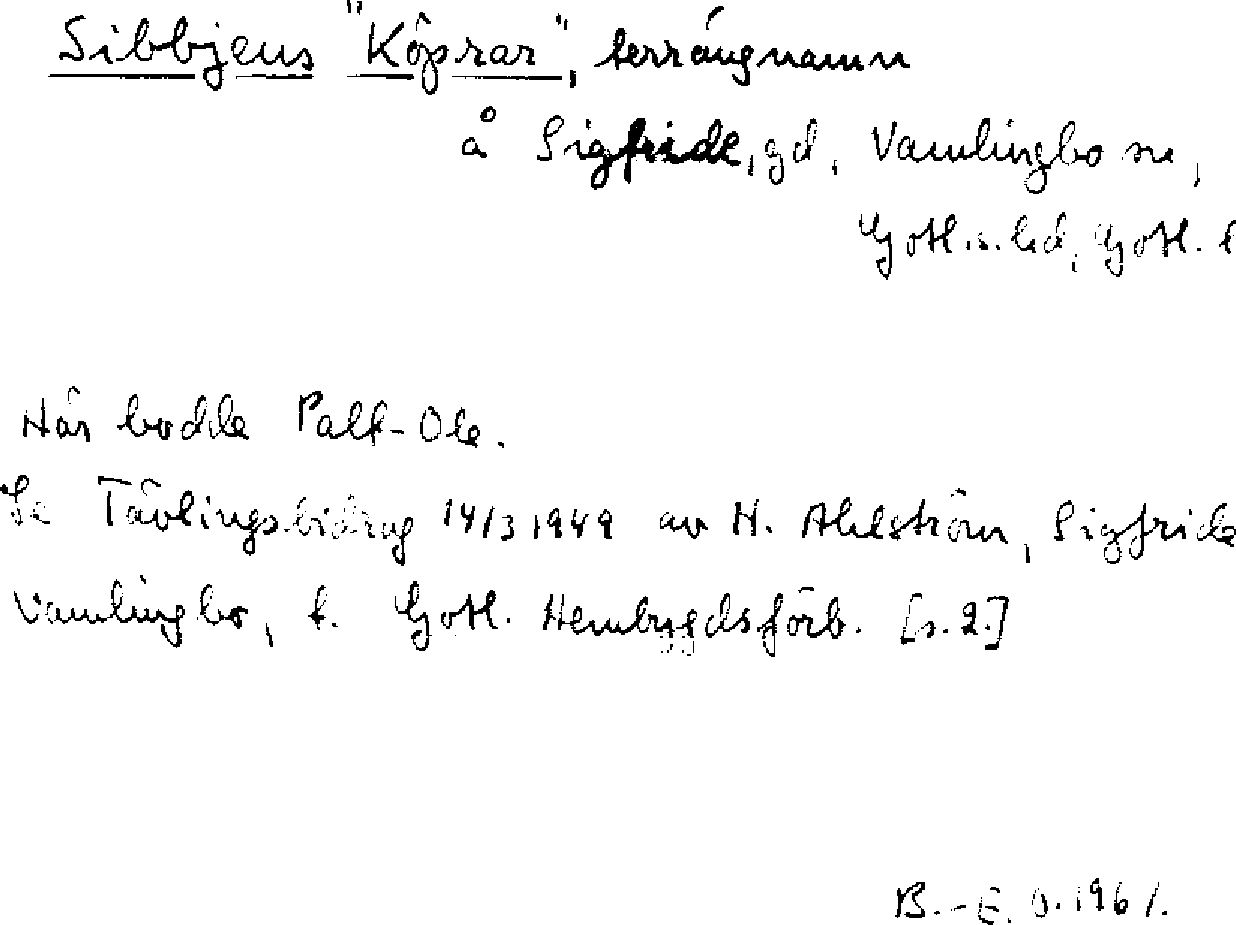 Sibbjens "Köprar", terrängnamn
å Sigfride, gd, Vamlingbo sn,
Gotl. s. hd, Gotl. l
Här bodde Palt-Ole.
Se Tävlingsbidrag 14/3 1949 av H. Ahlström, Sigfride
Vamlingbo, t. Gotl. Hembygdsförb. [s. 2.]
B.-E. O. 1961.